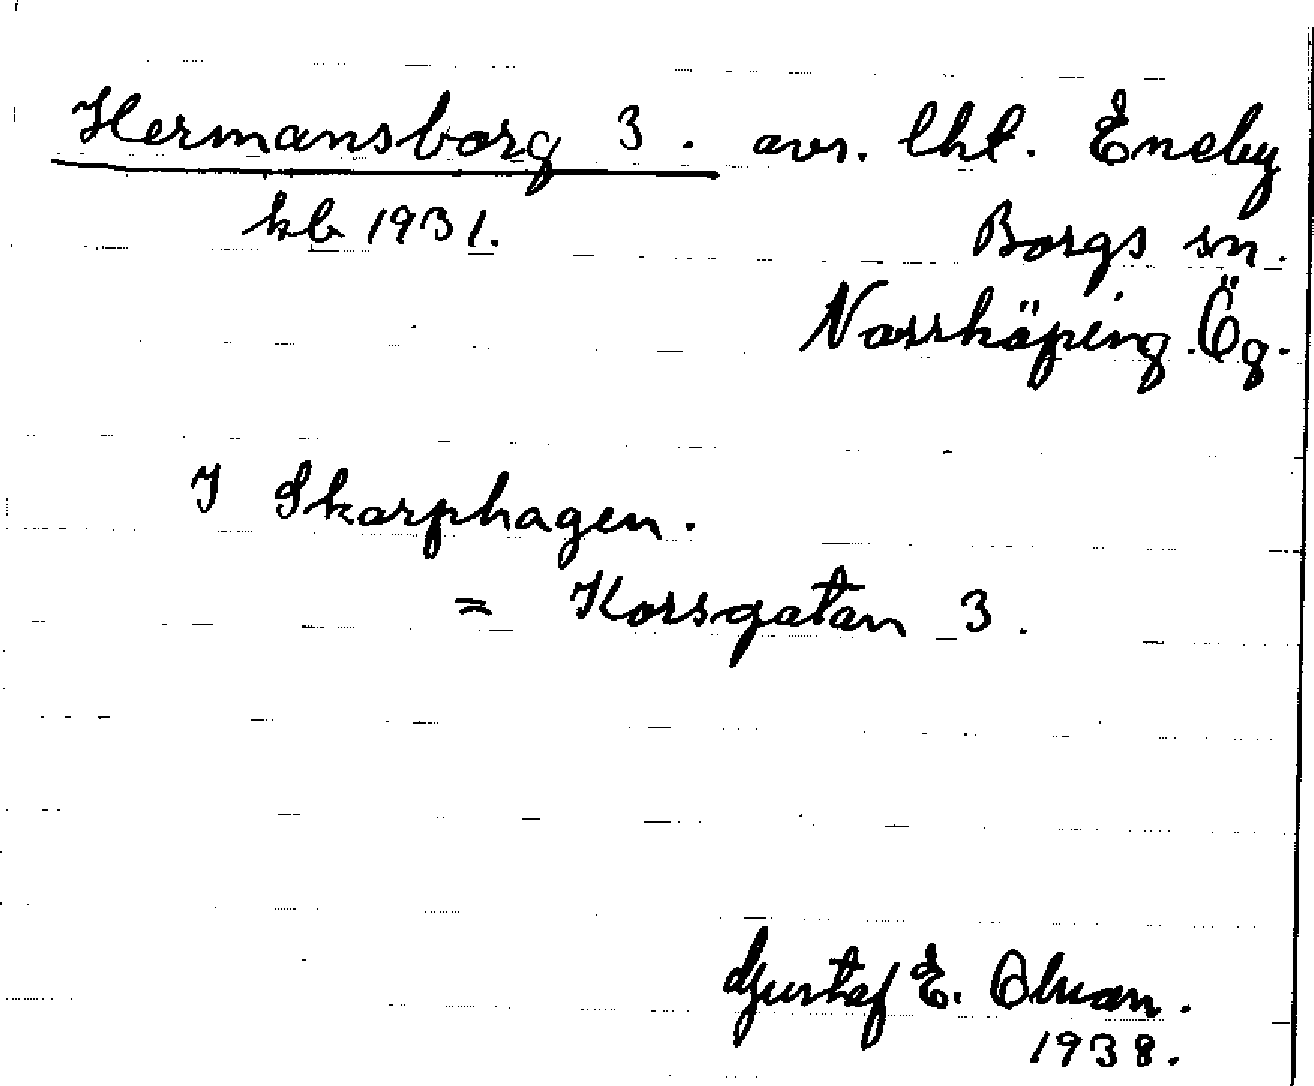 Hermansborg 3. avs. lht. Eneby
kb 1931. Borgs sn.
Norrköping. Ög.
I Skarphagen.
= Korsgatan 3.
Gustaf E. Olsson.
1938.